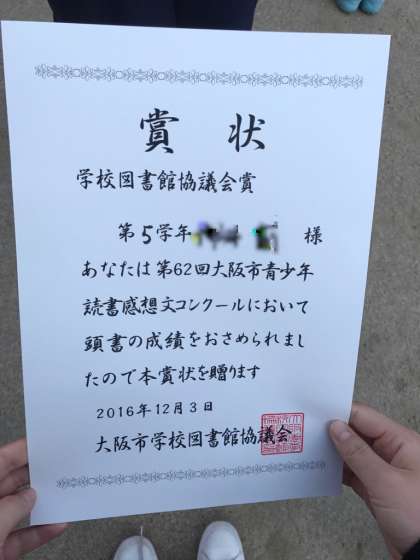 賞状
学校図書館協議会賞
第5学年 様
あなたは第62回大阪市青少年
読書感想文コンクールにおいて
頭書の成績をおさめられまし
たので本賞状を贈ります
2016年12月3日
大阪市学校図書館協議会